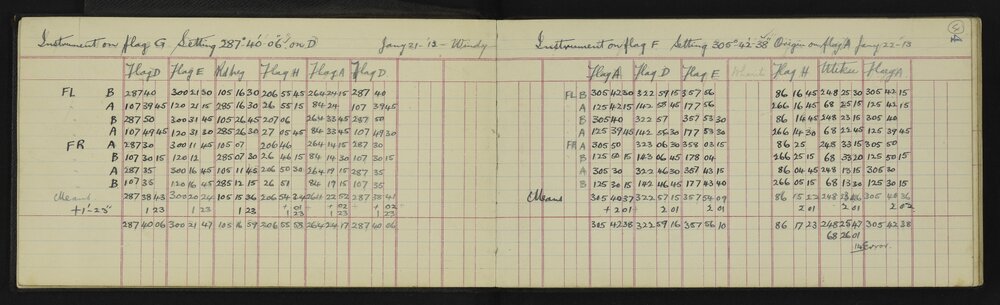 Instrument on flag G Setting 287° 40' 06" on D Jany 21-'13 - Windy
Flag D Flag E Flag H Flag A Flag D
FL B 287 40 300 21 30 105 16 30 206 55 45 264 24 15 287 40
A 107 39 45 120 21 15 285 16 30 26 55 15 84 24 107 39 45
B 287 50 300 31 45 105 26 45 207 06 264 33 45 287 50
A 107 49 45 120 31 30 285 26 30 27 05 45 84 33 45 107 49 30
FR A 287 30 300 11 45 105 07 206 46 264 14 15 287 30
B 107 30 15 120 12 285 07 30 26 46 15 84 14 30 107 30 15
A 287 35 300 16 45 105 11 45 206 50 30 264 19 15 287 35
B 107 35 120 16 45 285 12 15 26 51 84 19 15 107 35
Means 287 38 43 300 20 24 105 15 36 206 54 34 264 22 52 287 38 41
+ 01 + 02 + 02
+1'-23" 1 23 1 23 1 23 1 23 1 23 1 23
287 40 06 300 21 47 105 16 59 206 55 58 264 24 17 287 40 06
Instrument on flag F Setting 305° 42' 38" Origin on flag A Jany 22-'13
Flag A Flag D Flag E Flag H Utiku Flag A
FL B 305 42 30 322 59 15 357 56 86 16 45 248 25 30 305 42 15
A 125 42 15 142 58 45 177 56 266 16 45 68 25 15 125 42 15
B 305 40 322 57 357 53 30 86 14 45 248 23 15 305 40
A 125 39 45 142 56 30 177 53 30 266 14 30 68 22 45 125 39 45
FR A 305 50 323 06 30 358 03 15 86 25 248 33 15 305 50
B 125 50 15 143 06 45 178 04 266 25 15 68 33 20 125 50 15
A 305 30 322 46 30 357 43 15 86 04 45 248 13 15 305 30
B 125 30 15 142 46 45 177 43 40 266 05 15 68 13 30 125 30 15
Means 305 40 37 322 57 15 357 54 09 86 15 22 248 305 40 36
+ 2 01 2 01 2 01 2 01 2 01 2 02
305 42 38 322 59 16 357 56 10 86 17 23 248 25 47 305 42 38
68 26 01
14 Error.